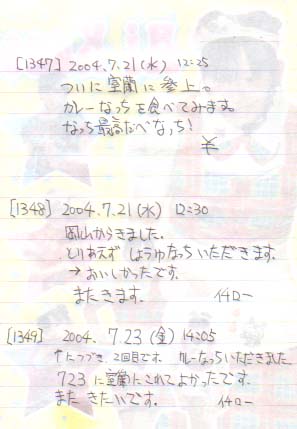 [1347] 2004.7.21(水) 12:25
ついに室蘭に参上。
カレーなっちを食べてみます。
なっち最高だべなっち!
[1348] 2004.7.21(水) 12:30
岡山からきました。
とりあえず しょうゆなっち いただきます。
→おいしかったです。
またきます。 イチロー
[1349] 2004. 7.23(金) 14:05
↑につづき 2回目です。 カレーなっちいただきました
723に室蘭にこれてよかったです。
また きたいです。 イチロー